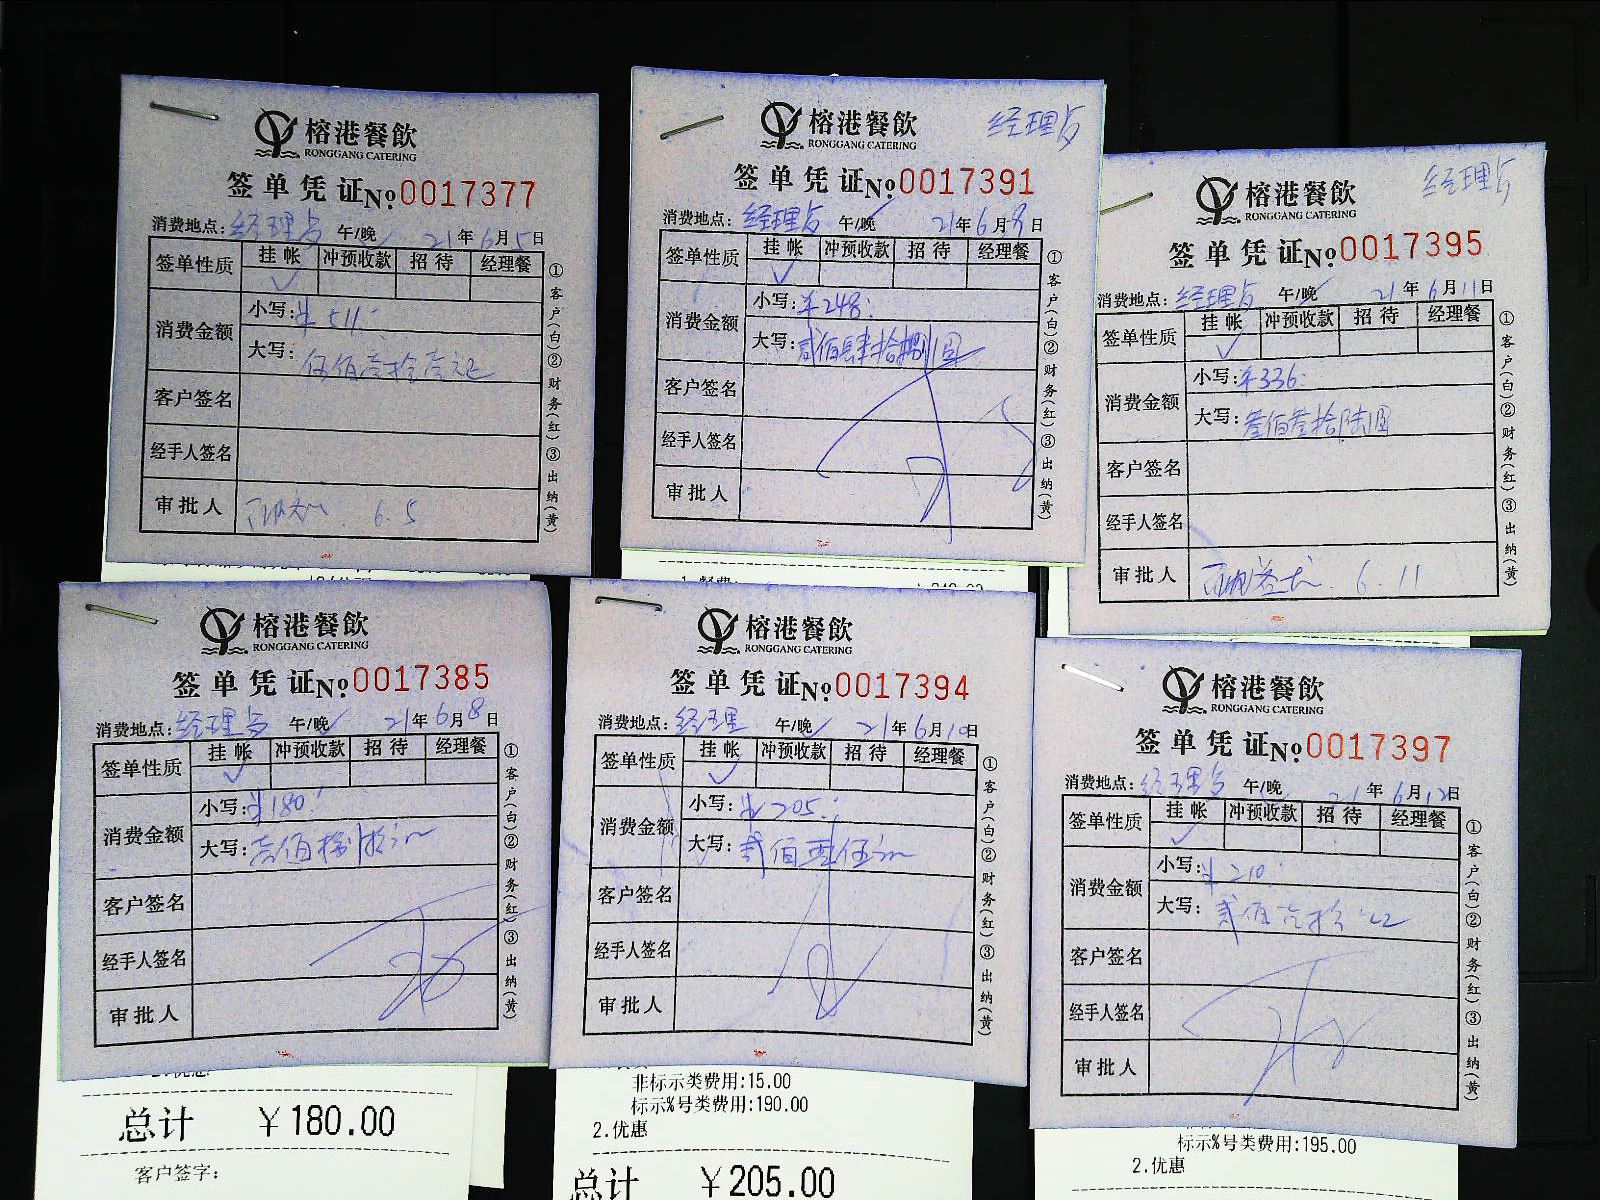 榕港餐飲
RONGGANG CATERING
签单凭证№0017377
消费地点:经理房 午/晚 21年6月5日
签单性质 挂帐 冲预收款 招待 经理餐
消费金额 小写:¥511.
大写:伍佰壹拾壹元正
客户签名
经手人签名
审批人 6.5
①客户(白)②财务(红)③出纳(黄)
榕港餐飲
RONGGANG CATERING
经理房
签单凭证№0017391
消费地点:经理房 午/晚 21年6月9日
签单性质 挂帐 冲预收款 招待 经理餐
消费金额 小写:¥248.
大写:贰佰肆拾捌圆
客户签名
经手人签名
审批人
①客户(白)②财务(红)③出纳(黄)
榕港餐飲
RONGGANG CATERING
经理房
签单凭证№0017395
消费地点:经理房 午/晚 21年6月11日
签单性质 挂帐 冲预收款 招待 经理餐
消费金额 小写:¥336.
大写:叁佰叁拾陆圆
客户签名
经手人签名
审批人 6.11
①客户(白)②财务(红)③出纳(黄)
榕港餐飲
RONGGANG CATERING
签单凭证№0017385
消费地点:经理房 午/晚 21年6月8日
签单性质 挂帐 冲预收款 招待 经理餐
消费金额 小写:¥180.
大写:壹佰捌拾元
客户签名
经手人签名
审批人
①客户(白)②财务(红)③出纳(黄)
总计 ¥180.00
客户签字:
榕港餐飲
RONGGANG CATERING
签单凭证№0017394
消费地点:经理 午/晚 21年6月10日
签单性质 挂帐 冲预收款 招待 经理餐
消费金额 小写:¥205.
大写:贰佰零伍元
客户签名
经手人签名
审批人
①客户(白)②财务(红)③出纳(黄)
非标示类费用:15.00
标示%号类费用:190.00
2.优惠
总计 ¥205.00
榕港餐飲
RONGGANG CATERING
签单凭证№0017397
消费地点:经理房 午/晚 21年6月12日
签单性质 挂帐 冲预收款 招待 经理餐
消费金额 小写:¥210.
大写:贰佰壹拾元
客户签名
经手人签名
审批人
①客户(白)②财务(红)③出纳(黄)
标示%号类费用:195.00
2.优惠